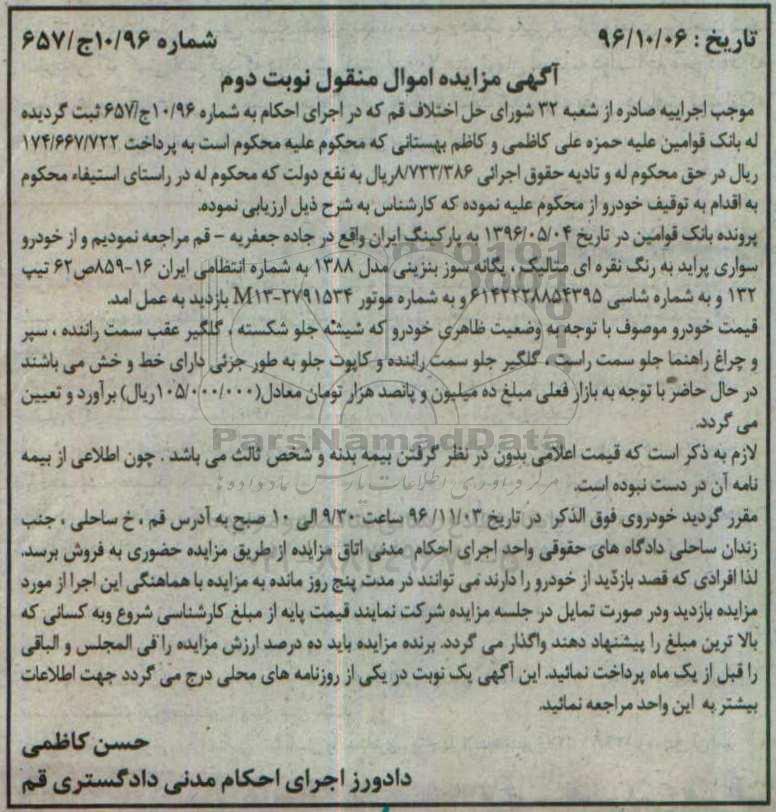 تاریخ : ۹۶/۱۰/۰۶
شماره ۱۰/۹۶ج/۶۵۷
آگهی مزایده اموال منقول نوبت دوم
موجب اجراییه صادره از شعبه ۳۲ شورای حل اختلاف قم که در اجرای احکام به شماره ۱۰/۹۶ج/۶۵۷ ثبت گردیده
له بانک قوامین علیه حمزه علی کاظمی و کاظم بهستانی که محکوم علیه محکوم است به پرداخت ۱۷۴/۶۶۷/۷۲۲
ریال در حق محکوم له و تادیه حقوق اجرائی ۸/۷۳۳/۳۸۶ریال به نفع دولت که محکوم له در راستای استیفاء محکوم
به اقدام به توقیف خودرو از محکوم علیه نموده که کارشناس به شرح ذیل ارزیابی نموده.
پرونده بانک قوامین در تاریخ ۱۳۹۶/۰۵/۰۴ به پارکینگ ایران واقع در جاده جعفریه - قم مراجعه نمودیم و از خودرو
سواری پراید به رنگ نقره ای متالیک ، یگانه سوز بنزینی مدل ۱۳۸۸ به شماره انتظامی ایران ۱۶-۸۵۹ص۶۲ تیپ
۱۳۲ و به شماره شاسی ۶۱۴۲۲۲۸۸۵۴۳۹۵ و به شماره موتور M۱۳-۲۷۹۱۵۳۴ بازدید به عمل امد.
قیمت خودرو موصوف با توجه به وضعیت ظاهری خودرو که شیشه جلو شکسته ، گلگیر عقب سمت راننده ، سپر
و چراغ راهنما جلو سمت راست ، گلگیر جلو سمت راننده و کاپوت جلو به طور جزئی دارای خط و خش می باشند
در حال حاضر با توجه به بازار فعلی مبلغ ده میلیون و پانصد هزار تومان معادل(۱۰۵/۰۰۰/۰۰۰ریال) برآورد و تعیین
می گردد.
ParsNamadData
لازم به ذکر است که قیمت اعلامی بدون در نظر گرفتن بیمه بدنه و شخص ثالث می باشد . چون اطلاعی از بیمه
نامه آن در دست نبوده است.
مقرر گردید خودروی فوق الذکر در تاریخ ۹۶/۱۱/۰۳ ساعت ۹/۳۰ الی ۱۰ صبح به آدرس قم ، خ ساحلی ، جنب
زندان ساحلی دادگاه های حقوقی واحد اجرای احکام مدنی اتاق مزایده از طریق مزایده حضوری به فروش برسد.
لذا افرادی که قصد بازدید از خودرو را دارند می توانند در مدت پنج روز مانده به مزایده با هماهنگی این اجرا از مورد
مزایده بازدید ودر صورت تمایل در جلسه مزایده شرکت نمایند قیمت پایه از مبلغ کارشناسی شروع وبه کسانی که
بالا ترین مبلغ را پیشنهاد دهند واگذار می گردد. برنده مزایده باید ده درصد ارزش مزایده را فی المجلس و الباقی
را قبل از یک ماه پرداخت نمائید. این آگهی یک نوبت در یکی از روزنامه های محلی درج می گردد جهت اطلاعات
بیشتر به این واحد مراجعه نمائید.
حسن کاظمی
دادورز اجرای احکام مدنی دادگستری قم